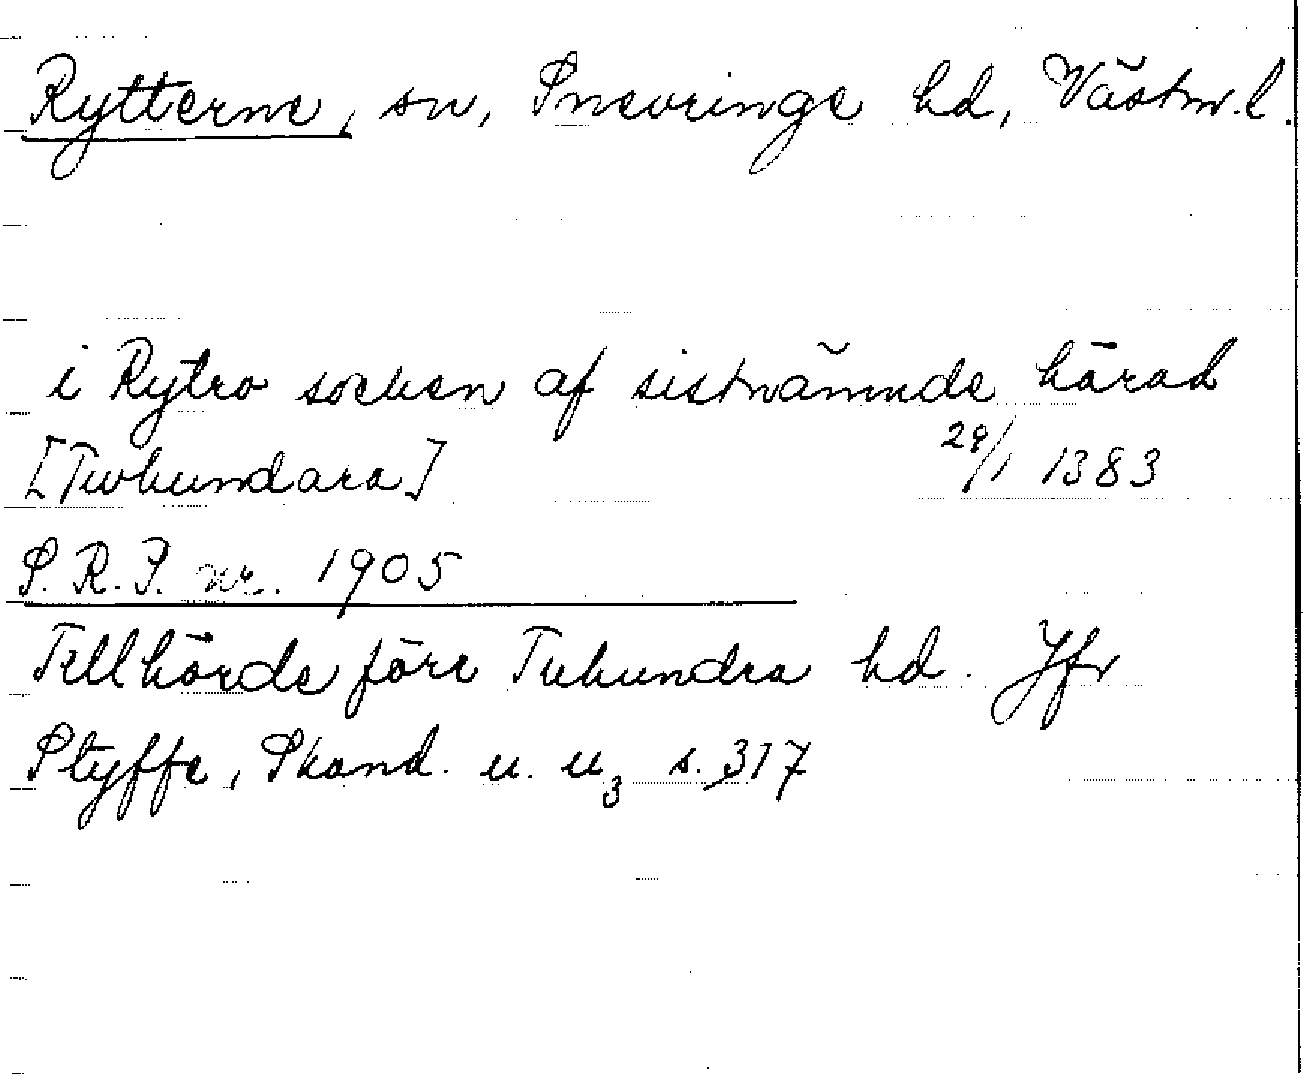 Rytterne, sn, Snevringe hd, Västm.l.
i Rytro socken af sistnämnde härad
[Tuhundara] 29/1 1383
S.R.P. nr. 1905
Tillhörde förr Tuhundra hd. Jfr
Styffe, Skand. u. u3 s. 317